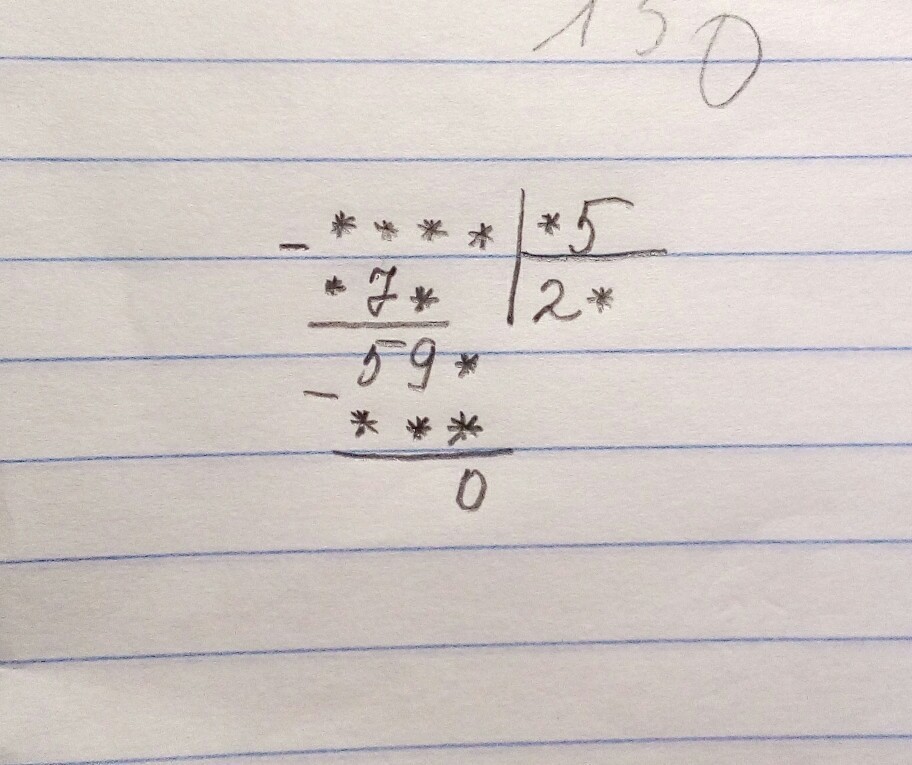 150
- * * * * | * 5
* 7 * | 2 *
5 9 *
- * * *
0